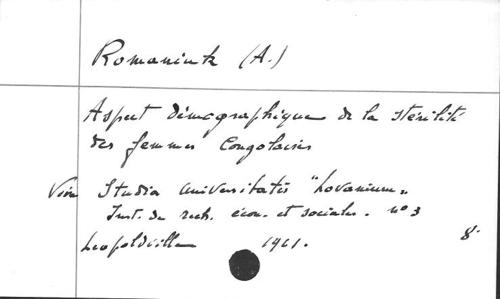 Romaniuk (A.)
Aspect démographique de la stérilité
des femmes Congolaises
Voir Studia Universitatis "Lovanium"
Inst. de rech. écon. et sociales. n° 3
Leopoldville 1961. 8°